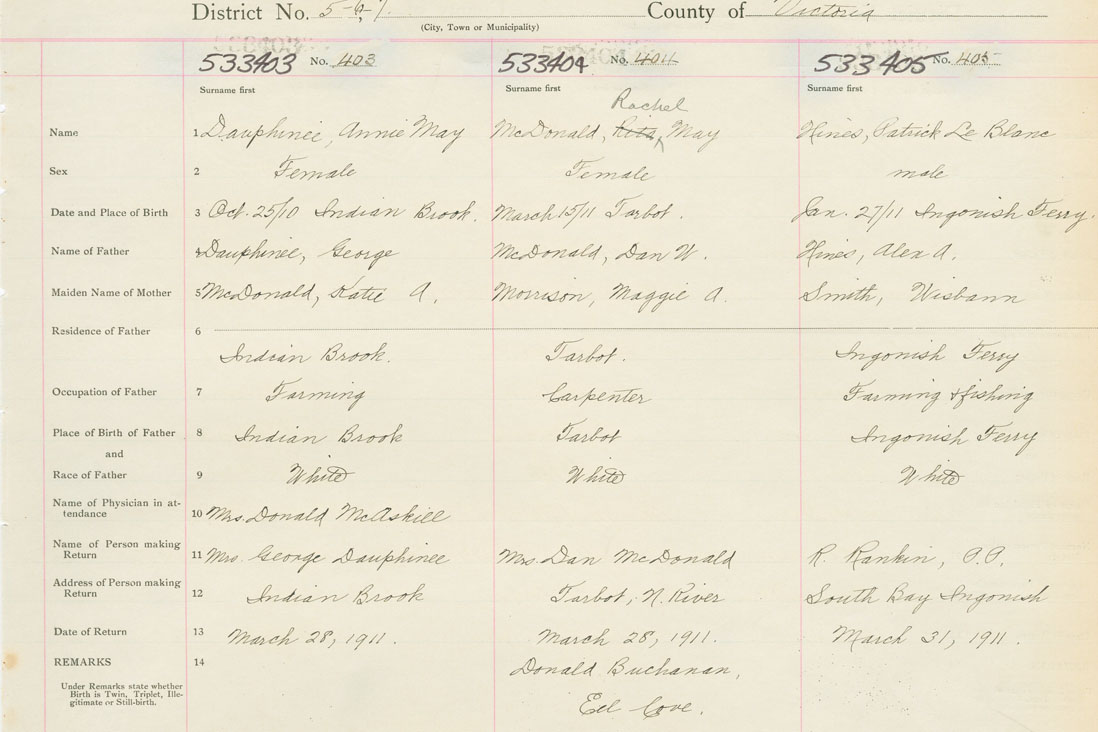 District No. 5-6-7. County of Victoria
(City, Town or Municipality)
533403 No. 403 533404 No. 404 533405 No. 405
Surname first Surname first Surname first
Rachel
Name 1 Dauphinee, Annie May McDonald, Rita, May Hines, Patrick Le Blanc
Sex 2 Female Female male
Date and Place of Birth 3 Oct. 25/10 Indian Brook. March 15/11 Tarbot. Jan. 27/11 Ingonish Ferry.
Name of Father 4 Dauphinee, George McDonald, Dan W. Hines, Alex A.
Maiden Name of Mother 5 McDonald, Katie A. Morrison, Maggie A. Smith, Wisbann
Residence of Father 6
Indian Brook. Tarbot. Ingonish Ferry
Occupation of Father 7 Farming Carpenter Farming & fishing
Place of Birth of Father 8 Indian Brook Tarbot Ingonish Ferry
and
Race of Father 9 White White White
Name of Physician in at-
tendance 10 Mrs. Donald McAskill
Name of Person making
Return 11 Mrs. George Dauphinee Mrs. Dan McDonald R. Rankin, P.P.
Address of Person making
Return 12 Indian Brook Tarbot, N. River South Bay Ingonish
Date of Return 13 March 28, 1911. March 28, 1911. March 31, 1911.
REMARKS 14 Donald Buchanan,
Under Remarks state whether
Birth is Twin, Triplet, Ille-
gitimate or Still-birth.
Eel Cove.